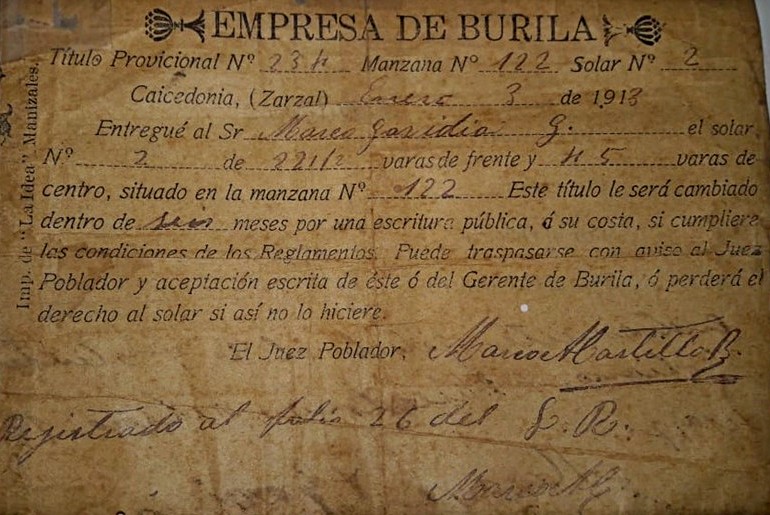 EMPRESA DE BURILA
Título Provicional Nº 234 Manzana Nº 122 Solar Nº 2
Caicedonia, (Zarzal) Enero 3 de 1913
Entregué al Sr Marco G. el solar
Nº 2 de 22 1/2 varas de frente y 45 varas de
centro, situado en la manzana Nº 122 Este título le será cambiado
dentro de seis meses por una escritura pública, á su costa, si cumpliere
las condiciones de los Reglamentos. Puede traspasarse con aviso al Juez
Poblador y aceptación escrita de éste ó del Gerente de Burila, ó perderá el
derecho al solar si así no lo hiciere.
El Juez Poblador,
Registrado al folio 26 del L. R.
Imp. de "La Idea" Manizales.